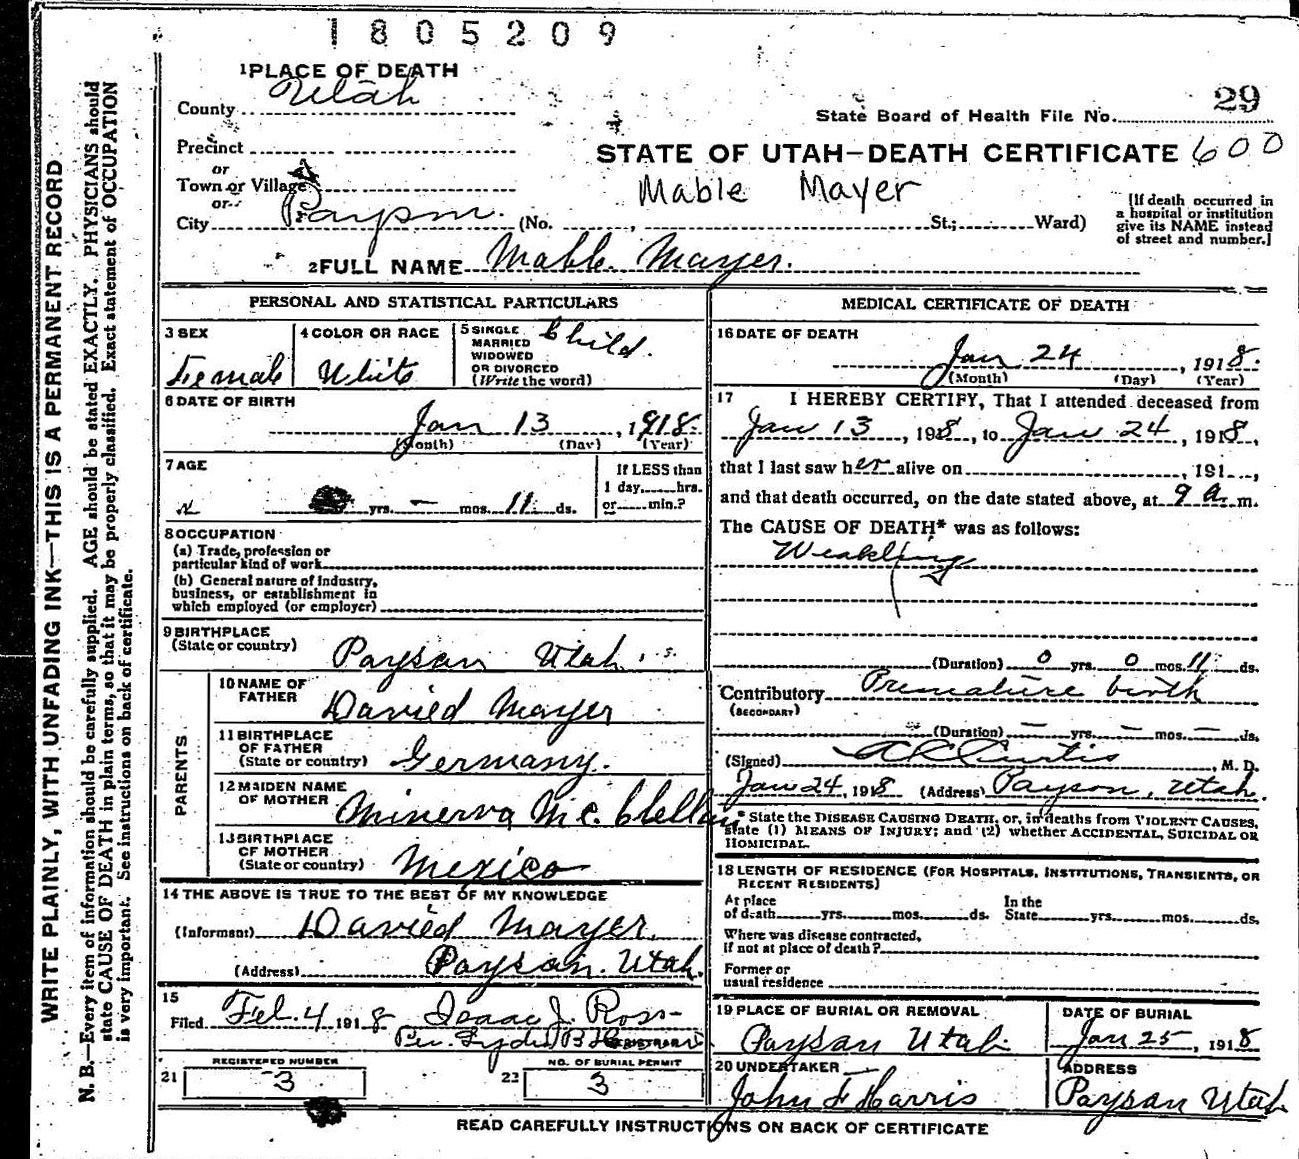 1805209
1 PLACE OF DEATH
County Utah
State Board of Health File No. 29
Precinct
or
Town or Village
or
STATE OF UTAH—DEATH CERTIFICATE 600
Mable Mayer
City Payson. (No. , St.; Ward)
[If death occurred in
a hospital or institution
give its NAME instead
of street and number.]
2 FULL NAME Mable Mayer.
PERSONAL AND STATISTICAL PARTICULARS
3 SEX
Female
4 COLOR OR RACE
White
5 SINGLE
MARRIED
WIDOWED
OR DIVORCED
(Write the word)
Child.
6 DATE OF BIRTH
Jan 13, 1918.
(Month) (Day) (Year)
7 AGE
yrs. – mos. 11 ds.
If LESS than
1 day, hrs.
or min.?
8 OCCUPATION
(a) Trade, profession or
particular kind of work
(b) General nature of industry,
business, or establishment in
which employed (or employer)
9 BIRTHPLACE
(State or country) Paysan Utah.
PARENTS
10 NAME OF
FATHER Davied Mayer
11 BIRTHPLACE
OF FATHER
(State or country) Germany.
12 MAIDEN NAME
OF MOTHER Minerva Mc.Clellan
13 BIRTHPLACE
OF MOTHER
(State or country) Mexico
14 THE ABOVE IS TRUE TO THE BEST OF MY KNOWLEDGE
(Informant) Davied Mayer.
(Address) Paysan. Utah.
15
Filed Feb. 4 1918 Isaac J. Ross
Per. REGISTRAR
REGISTERED NUMBER
21 3
NO. OF BURIAL PERMIT
22 3
MEDICAL CERTIFICATE OF DEATH
16 DATE OF DEATH
Jan 24, 1918.
(Month) (Day) (Year)
17 I HEREBY CERTIFY, That I attended deceased from
Jan 13, 1918, to Jan 24, 1918,
that I last saw her alive on , 191 ,
and that death occurred, on the date stated above, at 9 a.m.
The CAUSE OF DEATH* was as follows:
Weakling
(Duration) 0 yrs. 0 mos. 11 ds.
Contributory Premature birth
(SECONDARY)
(Duration) – yrs. – mos. – ds.
(Signed) A C Curtis, M. D.
Jan 24, 1918 (Address) Payson, Utah.
* State the DISEASE CAUSING DEATH, or, in deaths from VIOLENT CAUSES,
state (1) MEANS OF INJURY; and (2) whether ACCIDENTAL, SUICIDAL OR
HOMICIDAL.
18 LENGTH OF RESIDENCE (FOR HOSPITALS, INSTITUTIONS, TRANSIENTS, OR
RECENT RESIDENTS)
At place
of death yrs. mos. ds.
In the
State yrs. mos. ds.
Where was disease contracted,
if not at place of death?
Former or
usual residence
19 PLACE OF BURIAL OR REMOVAL
Paysan Utah
DATE OF BURIAL
Jan 25, 1918
20 UNDERTAKER
John F Harris
ADDRESS
Paysan Utah
READ CAREFULLY INSTRUCTIONS ON BACK OF CERTIFICATE
WRITE PLAINLY, WITH UNFADING INK—THIS IS A PERMANENT RECORD
N. B.—Every item of information should be carefully supplied. AGE should be stated EXACTLY. PHYSICIANS should
state CAUSE OF DEATH in plain terms, so that it may be properly classified. Exact statement of OCCUPATION
is very important. See instructions on back of certificate.